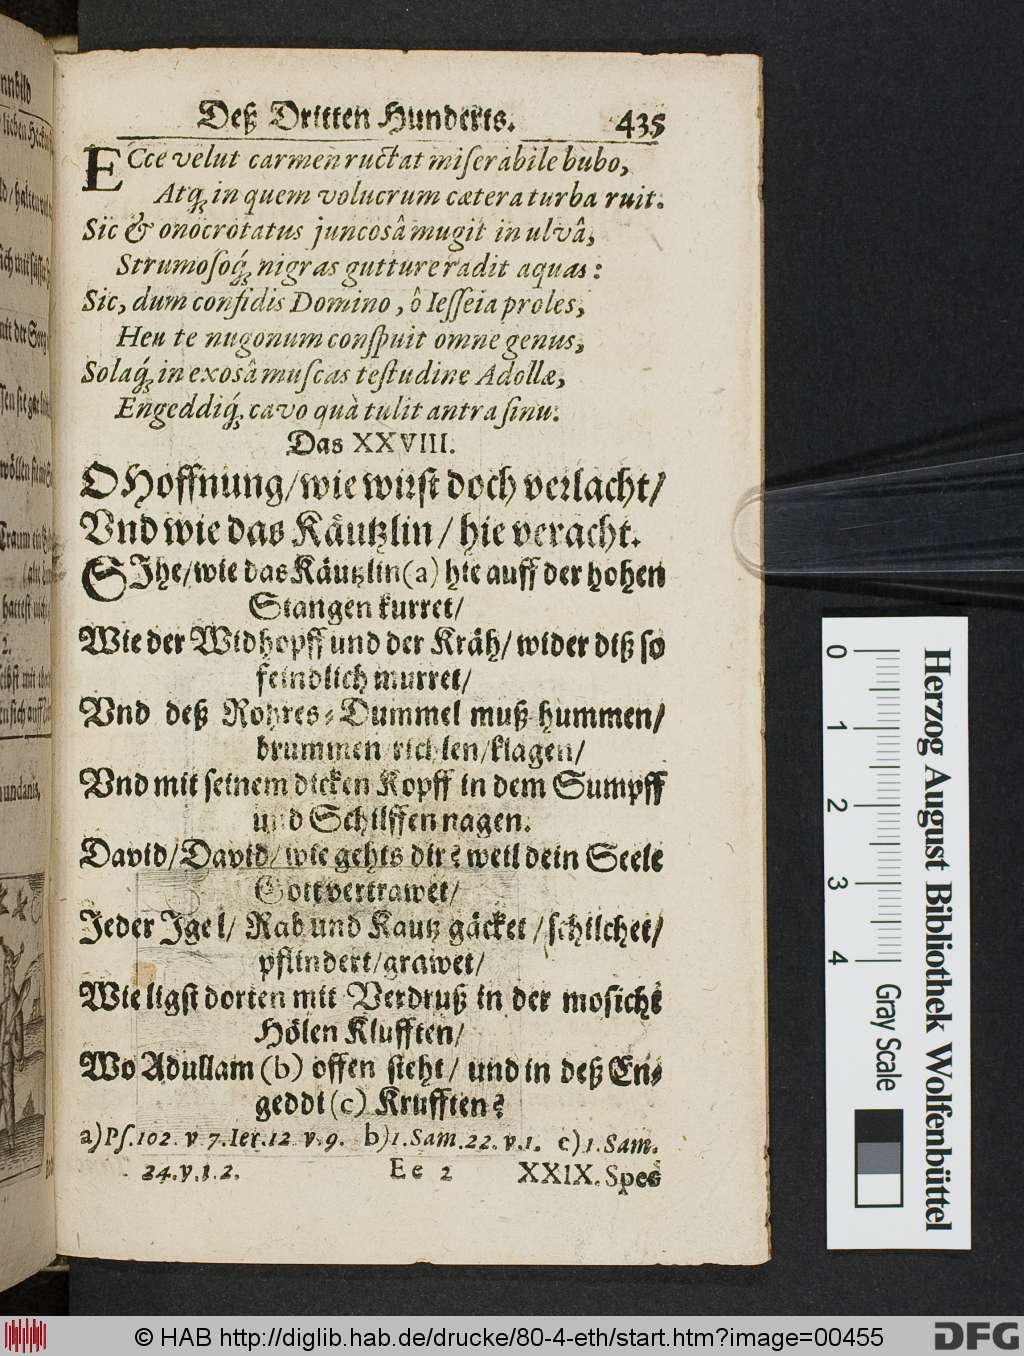 Deß Dritten Hunderts. 435
ECce velut carmen ructat miſerabile bubo,
Atq́; in quem volucrum cætera turba ruit.
Sic & onocrotatus juncosâ mugit in ulvâ,
Strumoſoq́; nigras gutture radit aquas:
Sic, dum confidis Domino, ô Ieſſeia proles,
Heu te nugonum conſpuit omne genus,
Solaq́; in exosâ muſcas teſtudine Adollæ,
Engeddiq́; cavo quà tulit antra ſinu.
Das XXVIII.
O Hoffnung/ wie wirſt doch verlacht/
Vnd wie das Käutzlin/ hie veracht.
SJhe/ wie das Käutzlin (a) hie auff der hohen
Stangen kurret/
Wie der Widhopff und der Kräh/ wider diß ſo
feindlich murret/
Vnd deß Rohres-Dummel muß hummen/
brummen/ /klagen/
Vnd mit ſeinem dicken Kopff in dem Sumpff
und Schilffen nagen.
David/ David/ wie gehts dir? weil dein Seele
Gott vertrawet/
Jeder Igel/ Rab und Kautz gäcket/ ſchilchet/
pflindert/ grawet/
Wie ligſt dorten mit Verdruß in der moſicht
Hölen Klufften/
Wo Adullam (b) offen ſteht/ und in deß En-
geddi (c) Krufften?
a) Pſ. 102. v 7. Ier. 12 v. 9. b) 1. Sam. 22. v. 1. c) 1. Sam.
24. v. 1. 2.
Ee 2 XXIX. Spes
nnbild
lieben
0 1 2 3 4
Gray Scale
Herzog August Bibliothek Wolfenbüttel
© HAB http://diglib.hab.de/drucke/80-4-eth/start.htm?image=00455
DFG